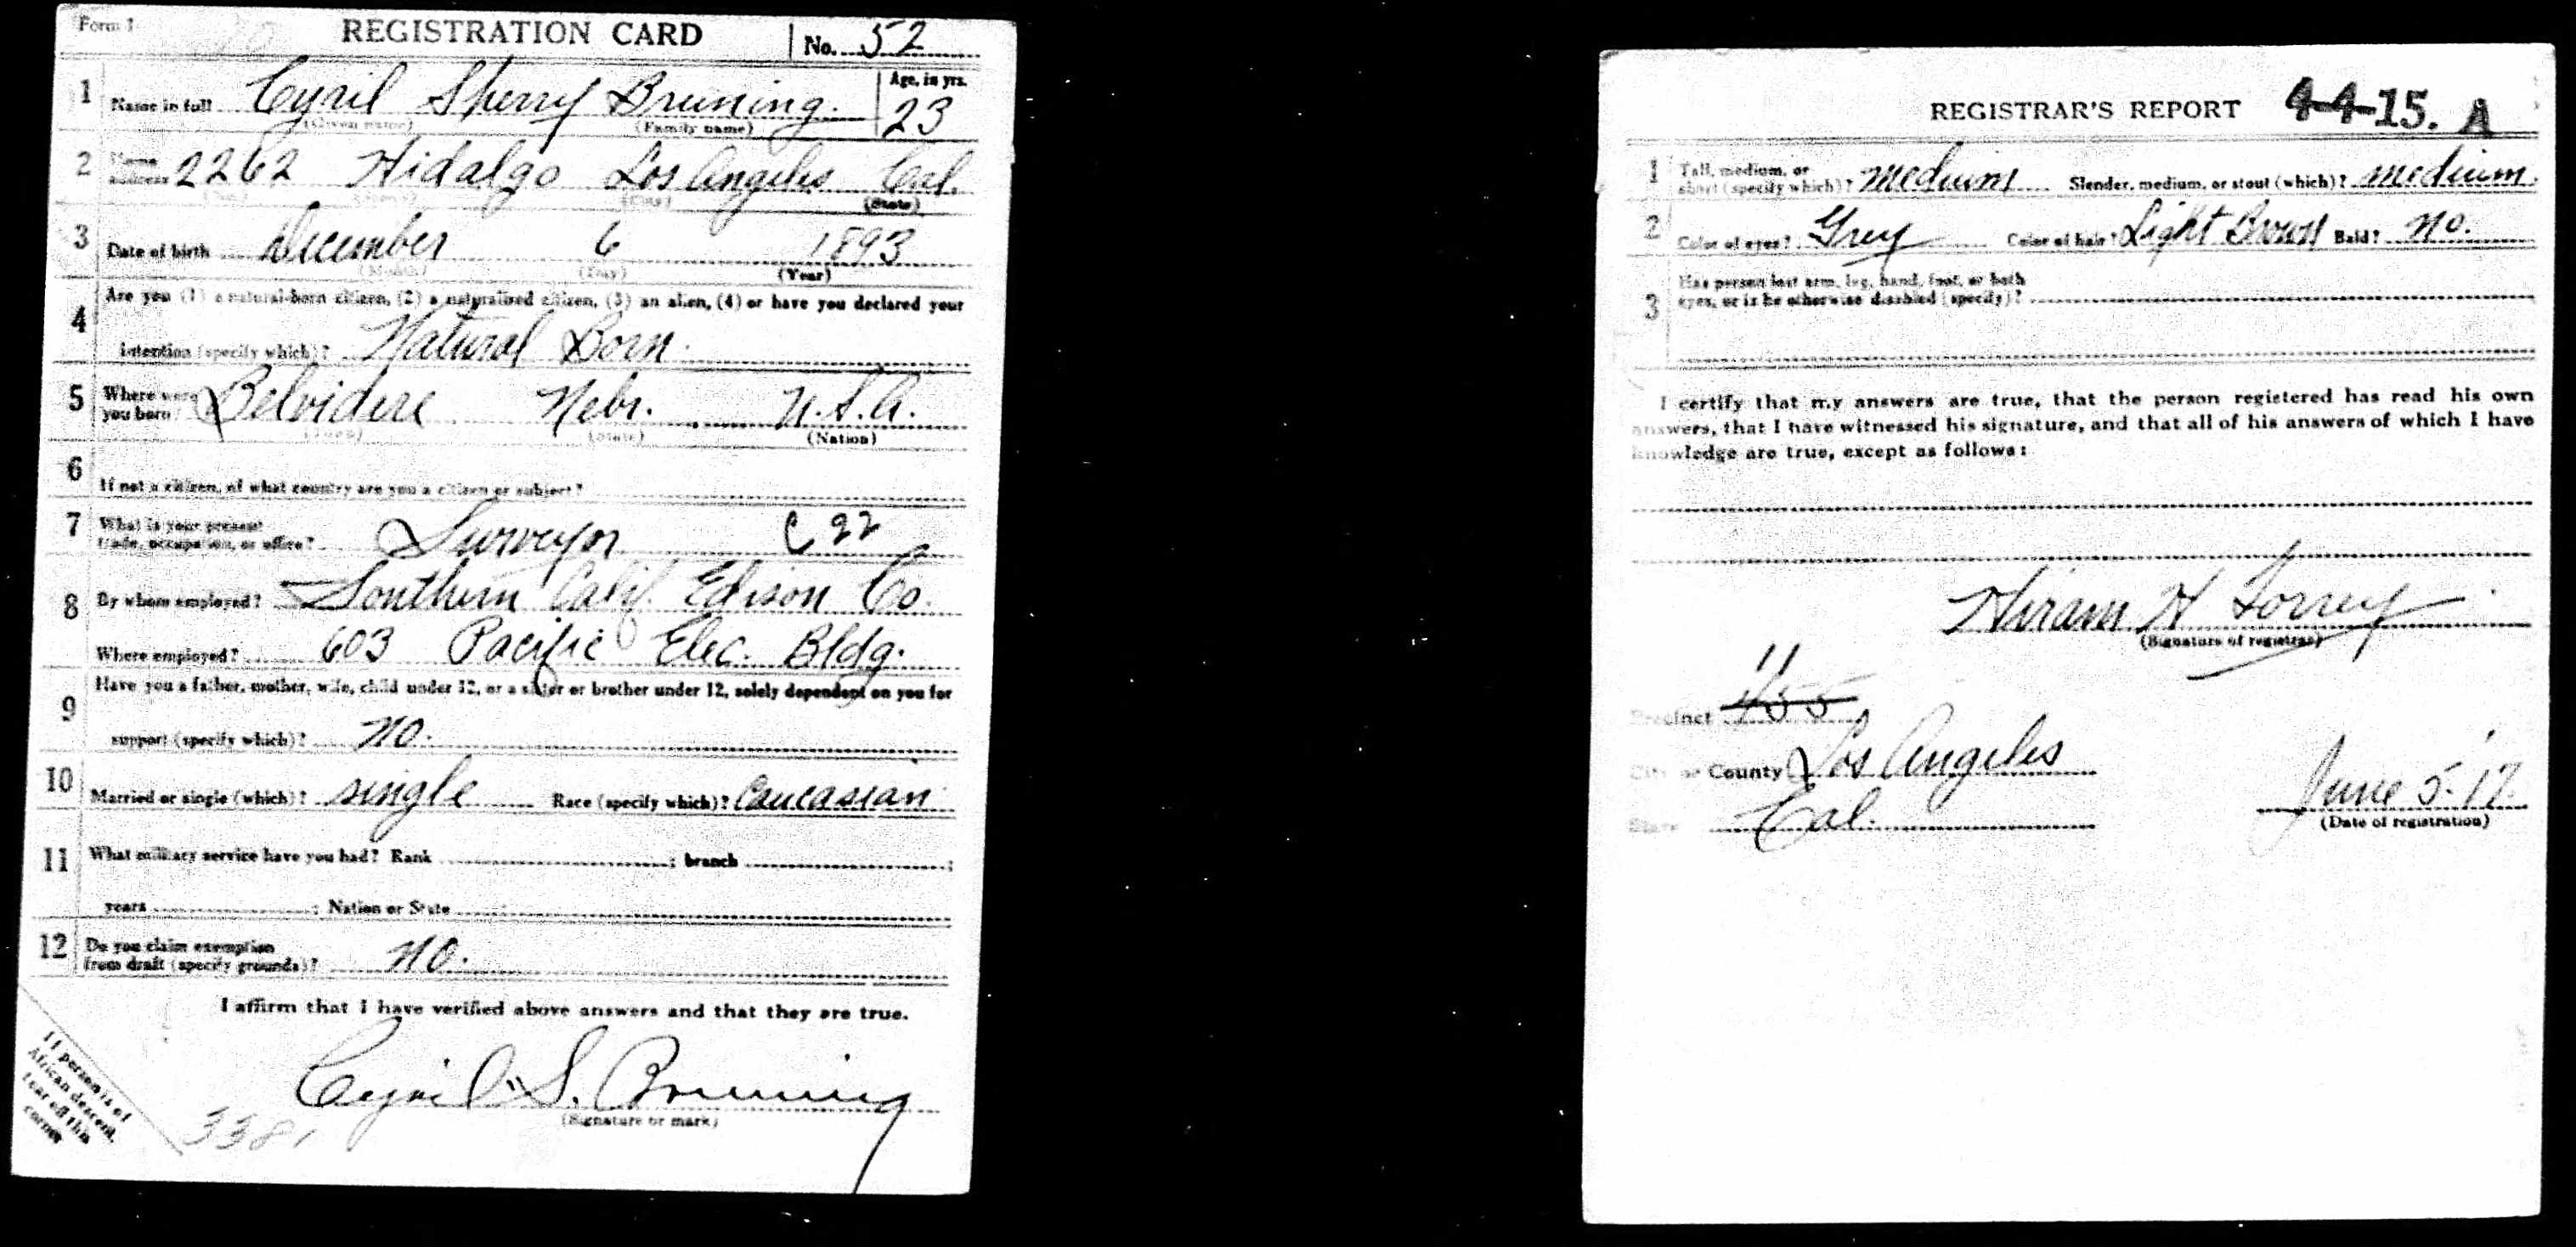 Form 1
REGISTRATION CARD
No. 52
1 Name in full Cyril Sherry Bruning. Age, in yrs. 23
(Given name) (Family name)
2 Home address 2262 Hidalgo Los Angeles Cal.
(No.) (Street) (City) (State)
3 Date of birth December 6 1893
(Month) (Day) (Year)
4 Are you (1) a natural-born citizen, (2) a naturalized citizen, (3) an alien, (4) or have you declared your
intention (specify which)? Natural Born.
5 Where were you born? Belvidere Nebr. U.S.A.
(Town) (State) (Nation)
6 If not a citizen, of what country are you a citizen or subject?
7 What is your present trade, occupation, or office? Surveyor C 22
8 By whom employed? Southern Calif. Edison Co.
Where employed? 603 Pacific Elec. Bldg.
9 Have you a father, mother, wife, child under 12, or a sister or brother under 12, solely dependent on you for
support (specify which)? No.
10 Married or single (which)? single Race (specify which)? Caucasian
11 What military service have you had? Rank ; branch ;
years ; Nation or State
12 Do you claim exemption from draft (specify grounds)? No.
I affirm that I have verified above answers and that they are true.
Cyril S. Bruning
(Signature or mark)
If person is of
African descent,
tear off this
corner
3381
REGISTRAR'S REPORT 4-4-15. A
1 Tall, medium, or short (specify which)? Medium Slender, medium, or stout (which)? Medium.
2 Color of eyes? Grey Color of hair? Light Brown Bald? No.
3 Has person lost arm, leg, hand, foot, or both
eyes, or is he otherwise disabled (specify)?
I certify that my answers are true, that the person registered has read his own
answers, that I have witnessed his signature, and that all of his answers of which I have
knowledge are true, except as follows:
Hiram H Torrey
(Signature of registrar)
11
Precinct 455
City or County Los Angeles
State Cal.
June 5-17.
(Date of registration)